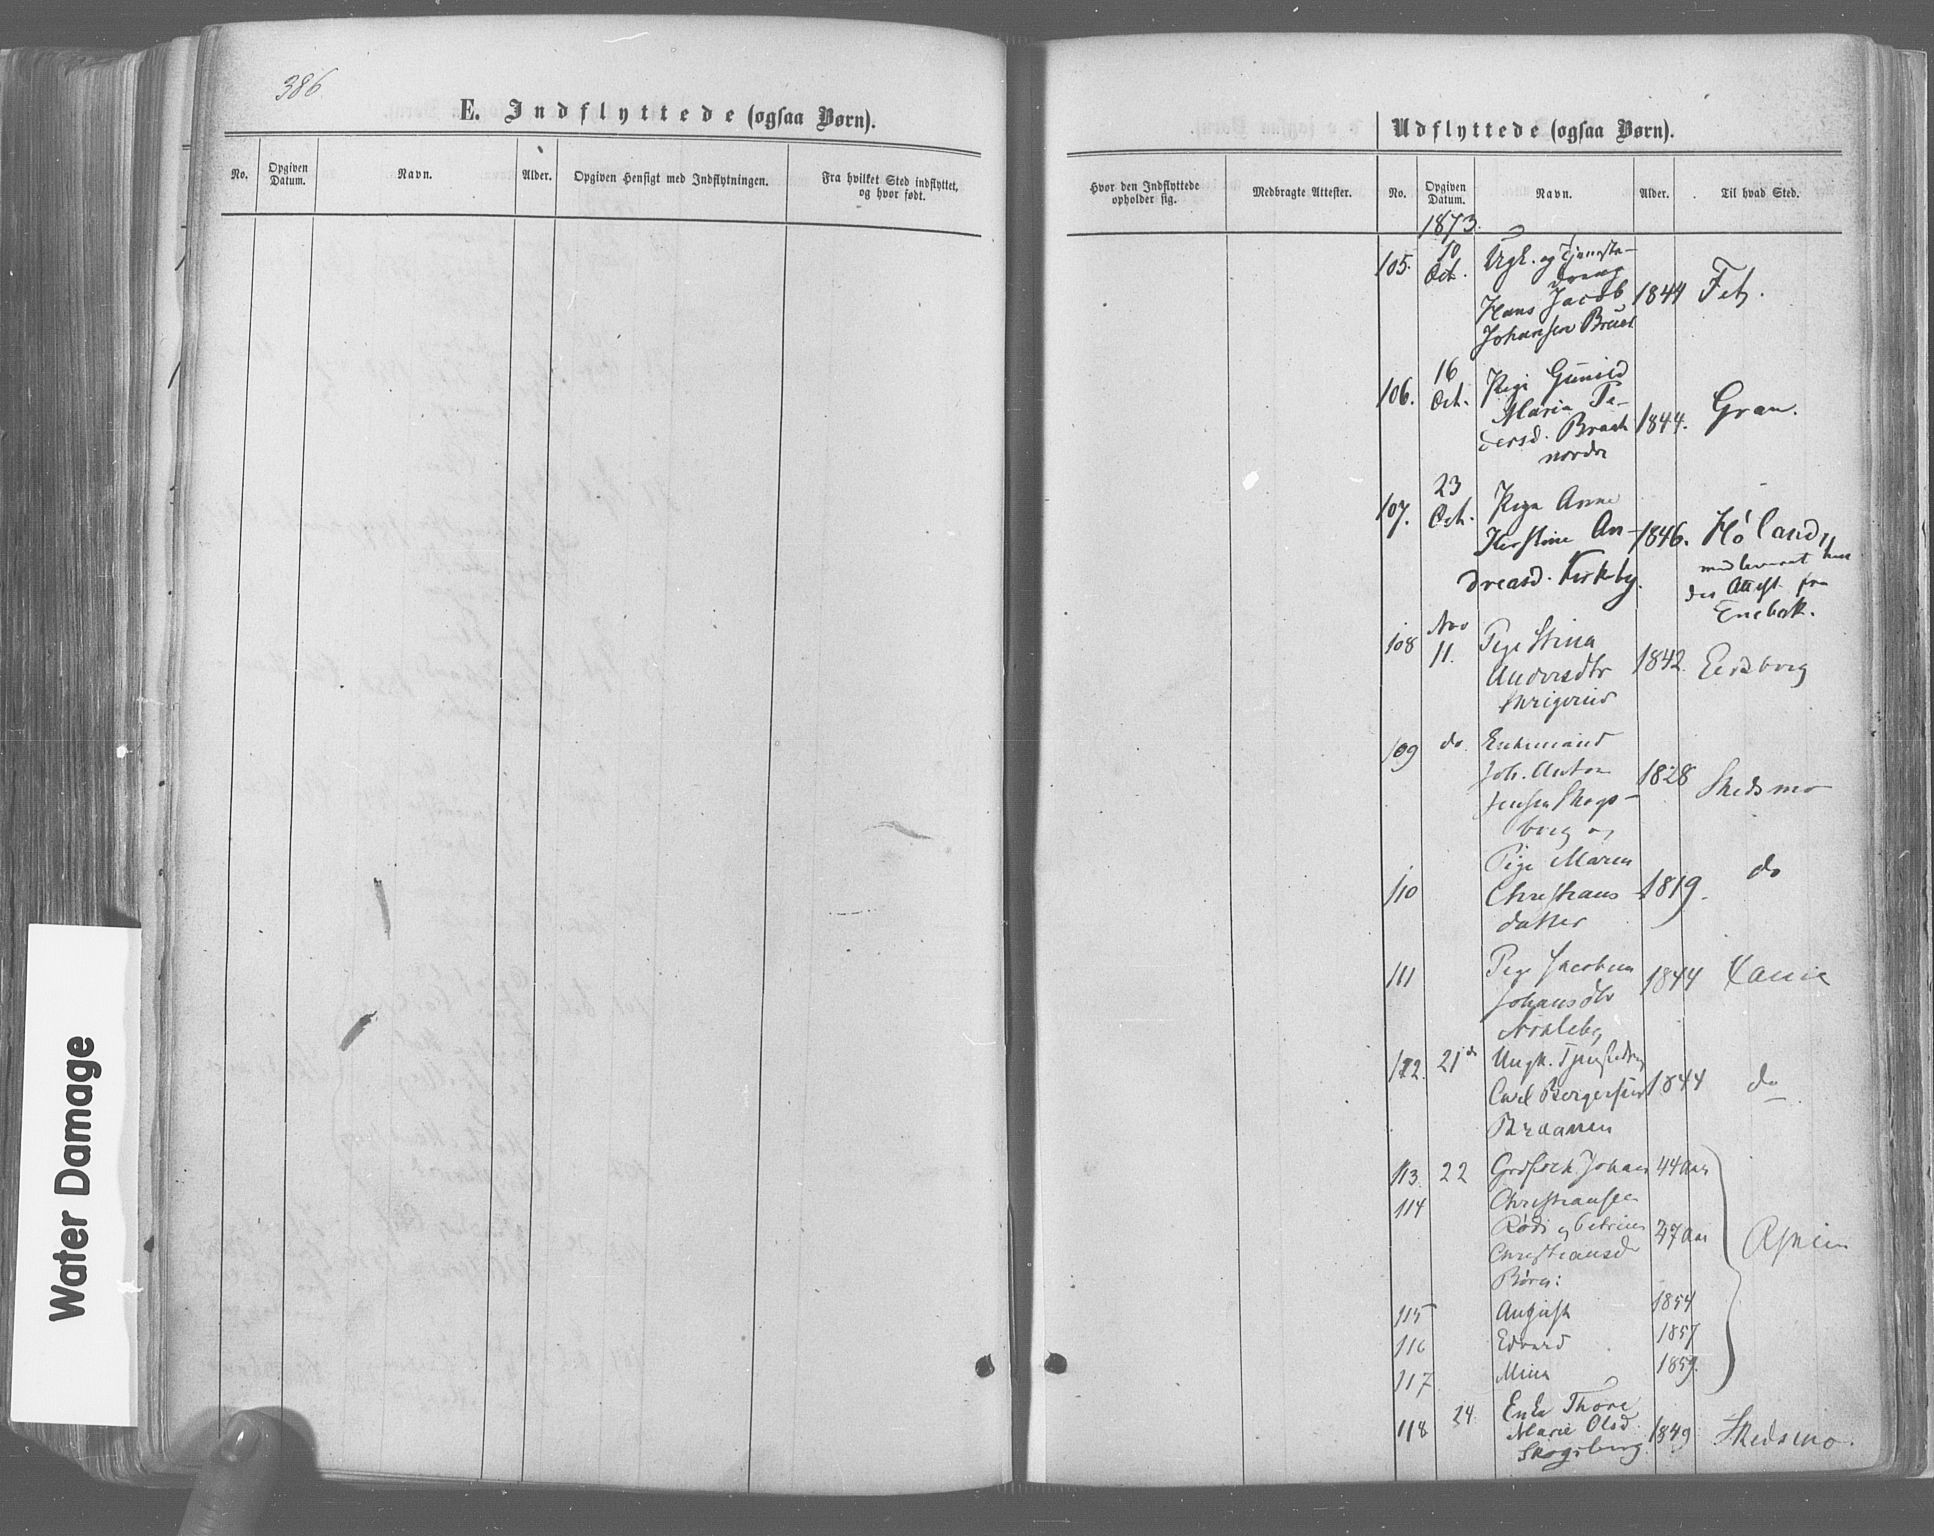 386
E. Indflyttede (ogsaa Børn).
No.
Opgiven Datum.
Navn.
Alder.
Opgiven Hensigt med Indflytningen.
Fra hvilket Sted indflyttet, og hvor født.
Udflyttede (ogsaa Børn).
Hvor den Indflyttede opholder sig.
Medbragte Attester.
No.
Opgiven Datum.
Navn.
Alder.
Til hvad Sted.
1873.
105. 10 Oct. Ugk. og Tjeneste-
dreng
Hans Jacob 1844 Fet.
Johansen
106. 16 Oct. Pige Gunild
Maria Pe-
dersd. Braat 1844. Gran.
nordre
107. 23 Oct. Pige Anne
Kirstine An- 1846. Høland,
dreasd. Kirkby.
Attest. fra
Enebak.
108 Nov 11. Pige Stina
Andersdtr 1842.
109 do Enkemand
Joh. Anton 1828 Skedsmo
Jensen Skogs-
borg og
110 Pige Maren do
Christians 1819.
datter
111 Pige Jacobine 1844
Johansdtr
112. 21 do Ungk.
Carl Borgersen 1844 do
Braanen
113 22 Johan 44 Aar
114 Christiansen
og Petrine 47 Aar
Christiansd
Børn:
115 August 1854
116 Edvard 1857
117 Mina 1859.
118 24 Enke Thore
Marie Olsd. 1849 Skedsmo.
Skogsborg.
Water Damage